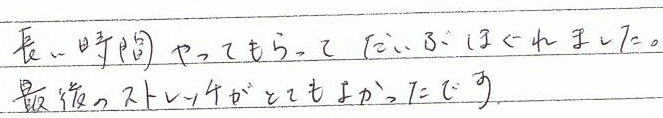 長い時間やってもらってだいぶほぐれました。
最後のストレッチがとてもよかったです